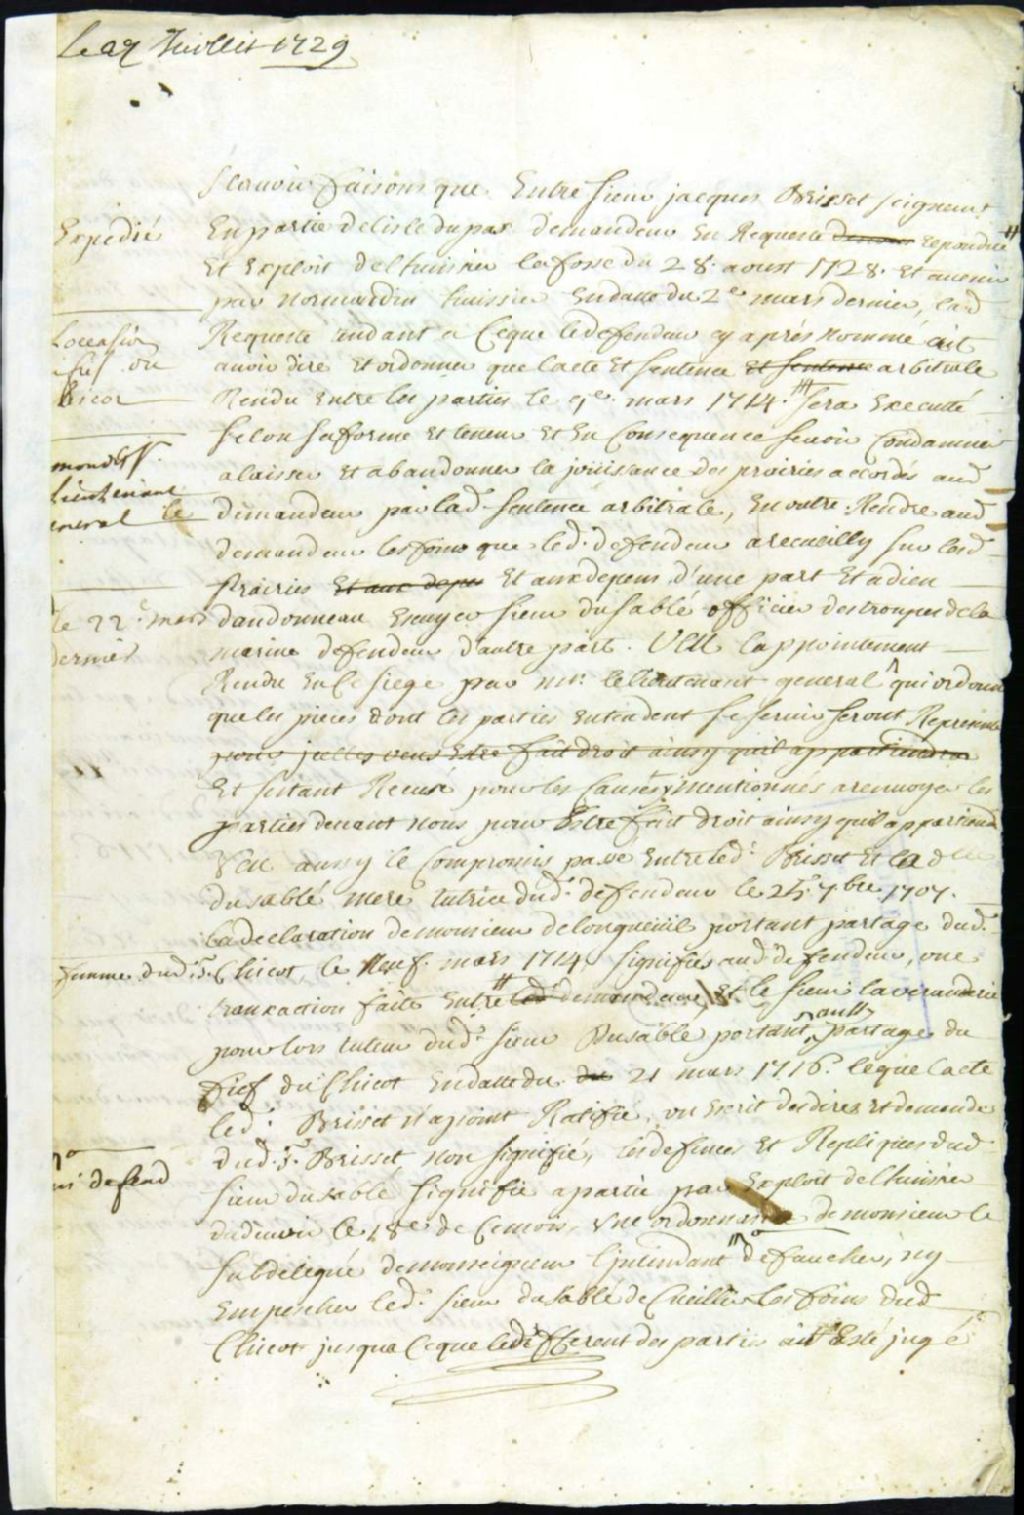 Juillet 1729
Scavoir faisons que Entre sieur jacques Brisset seigneur
Expedié
En partie de lisle dupas demandeur En Requeste repondüe
Et Exploit de lhuissier lafosse du 28. aoust 1728. Et avenir
par normandin huissier Endatte du 2e mars dernier, lad
Requeste tendant a Ceque ledefendeur cy aprés nommé ait
avoir dire Et ordonner que lacte Et sentence et sentence arbitrale
Rendu Entre les parties le 9e. mars 1714. sera Executté
selon saforme Et teneur Et En Consequence sevoir Condamner
alaisser Et abandonner la joüissance des prairies accordés aud
demandeur par lad. sentence arbitrale, En outre Rendre aud
demandeur les foins que led. defendeur a recueilly sur lesd
prairies Et aux depens Et aux depens d'une part Et adien
le 22e mars
dernier
dandonneau Escuyer sieur dusablé officier des troupes de la
marine defendeur d'autre part. VEU lappointement
Rendu En Ce siege par mr. le lieutenant general qui ordonne
que les pieces dont les parties Entendent se servir seront
pour juelles veus Estre fait droit ainsy quil appartiendra
Et sestant Recusé pour les Causes y mentionnés a renvoyer les
parties devant nous pour Estre fait droit ainsy quil appartiendra
VEU aussy le Compromis passé Entre led. Brisset Et la dlle
dusablé mere tutrice dud. defendeur le 25. 7bre 1707.
La declaration de monsieur delongueüil portant partage dud.
Chicot, le Neuf. mars 1714 signifiée aud. defendeur, une
transaction faite Entre led demandeur Et le sieur laveranderie
pour lors tuteur dud. sieur Dusablé portant aussy partage du
fief du Chicot Endatte du 21 mars 1716. lequel acte
led. Brisset n'a point Ratifié, un Escrit de dires Et demande
dud. Sr. Brisset non signifié, les defenses Et Repliques dud
ni defend
sieur dusablé signifié a partie par Exploit de lhuissier
le 18e de Cemois, Une ordonnance de monsieur le
subdelegué de monseigneur Lintendant de faucher, ny
Empescher led. sieur dusablé de Cueillir les foins dud
Chicot jusqua Ceque ledifferent des parties ait Esté jugé